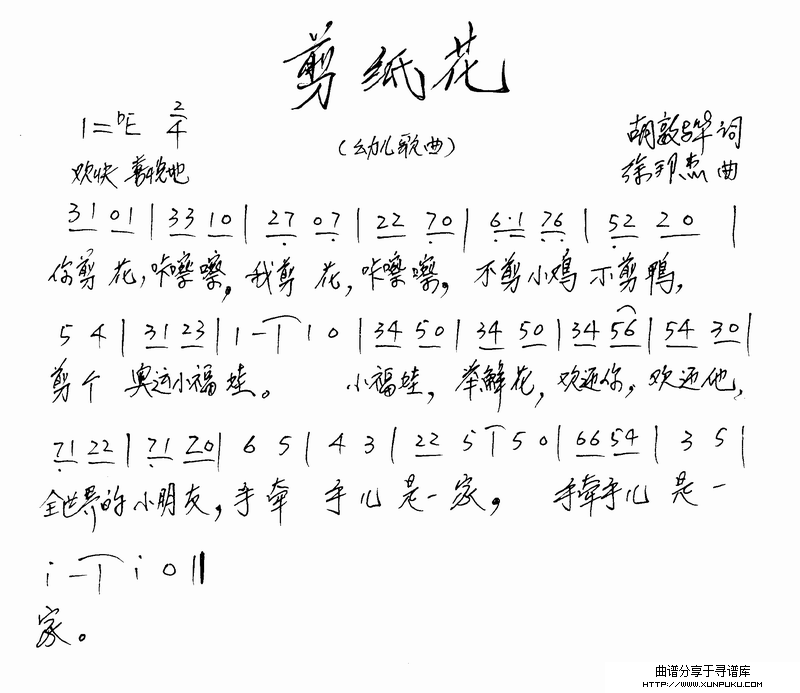 剪纸花
1=♭E 2/4
(幼儿歌曲)
胡敦华 词
欢快 喜悦地
徐邦杰 曲
31 01 | 33 10 | 27 07 | 22 70 | 6·1 76 | 52 20 |
你剪花,咔嚓嚓。我剪花,咔嚓嚓。不剪小鸡不剪鸭,
5 4 | 31 23 | 1 - | 1 0 | 34 50 | 34 50 | 34 56 | 54 30 |
剪个 奥运小福娃。 小福娃,举鲜花,欢迎你,欢迎他,
71 22 | 71 20 | 6 5 | 4 3 | 22 5 | 5 0 | 66 54 | 3 5 |
全世界的小朋友,手牵 手儿是一家, 手牵手儿 是一
i - | i 0 ‖
家。
曲谱分享于寻谱库
HTTP://WWW.XUNPUKU.COM